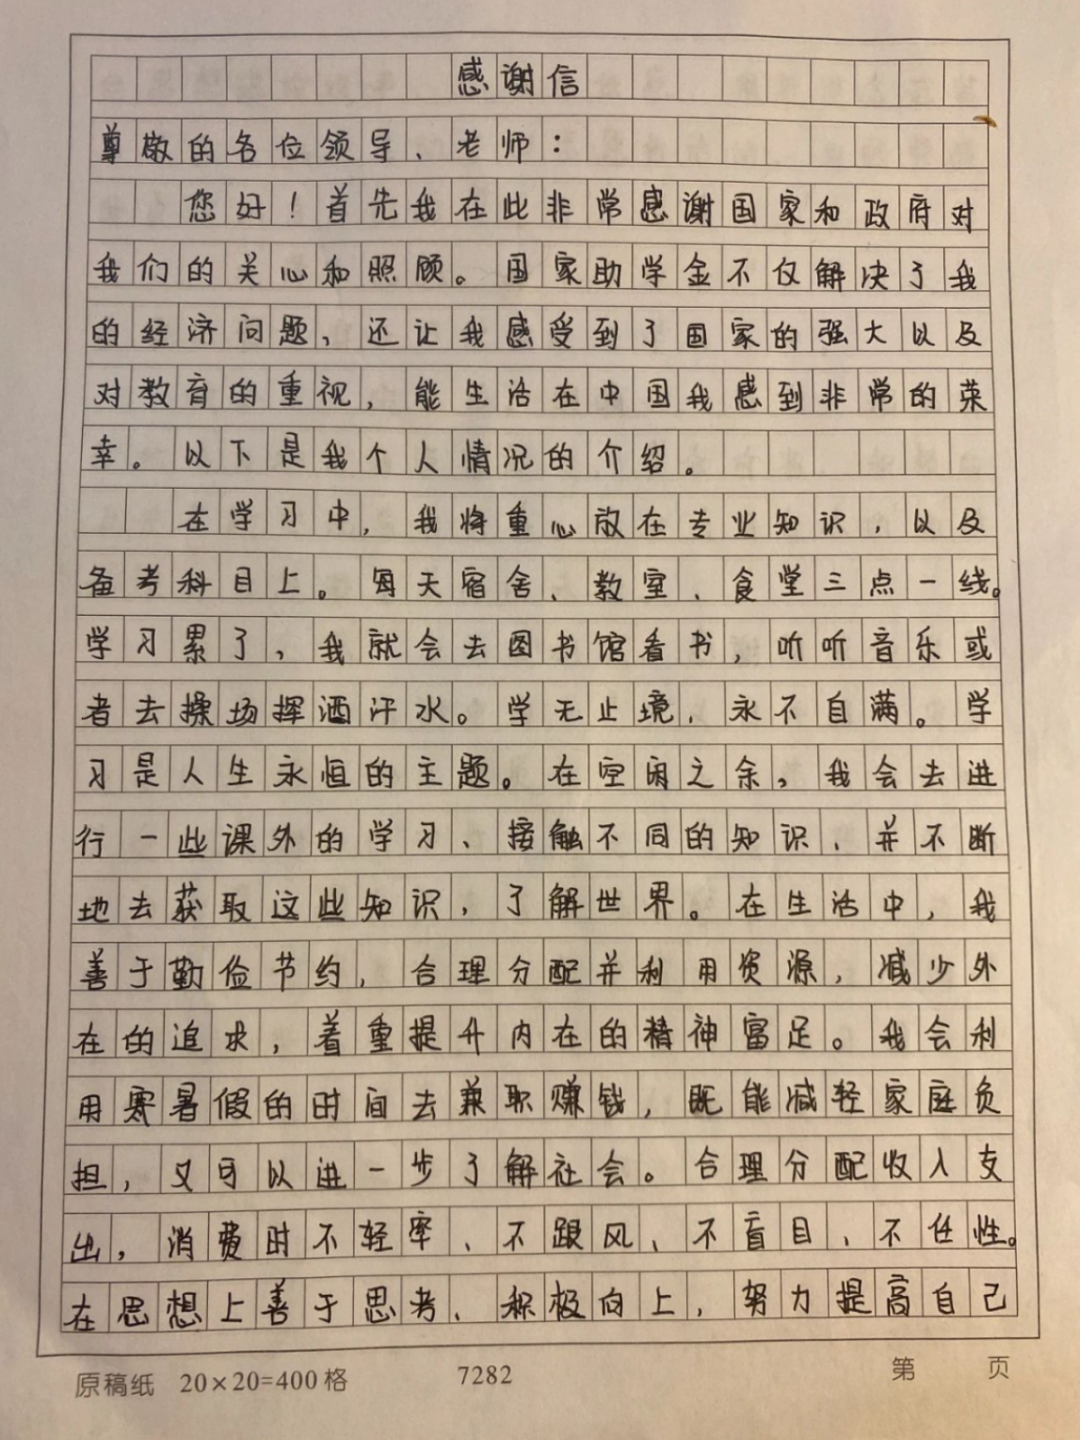 感谢信
尊敬的各位领导、老师：
您好！首先我在此非常感谢国家和政府对
我们的关心和照顾。国家助学金不仅解决了我
的经济问题，还让我感受到了国家的强大以及
对教育的重视，能生活在中国我感到非常的荣
幸。以下是我个人情况的介绍。
在学习中，我将重心放在专业知识，以及
备考科目上。每天宿舍、教室、食堂三点一线。
学习累了，我就会去图书馆看书，听听音乐或
者去操场挥洒汗水。学无止境，永不自满。学
习是人生永恒的主题。在空闲之余，我会去进
行一些课外的学习、接触不同的知识、并不断
地去获取这些知识，了解世界。在生活中，我
善于勤俭节约，合理分配并利用资源，减少外
在的追求，着重提升内在的精神富足。我会利
用寒暑假的时间去兼职赚钱，既能减轻家庭负
担，又可以进一步了解社会。合理分配收入支
出，消费时不轻率、不跟风、不盲目、不任性。
在思想上善于思考、积极向上，努力提高自己
原稿纸 20×20=400格 7282 第 页